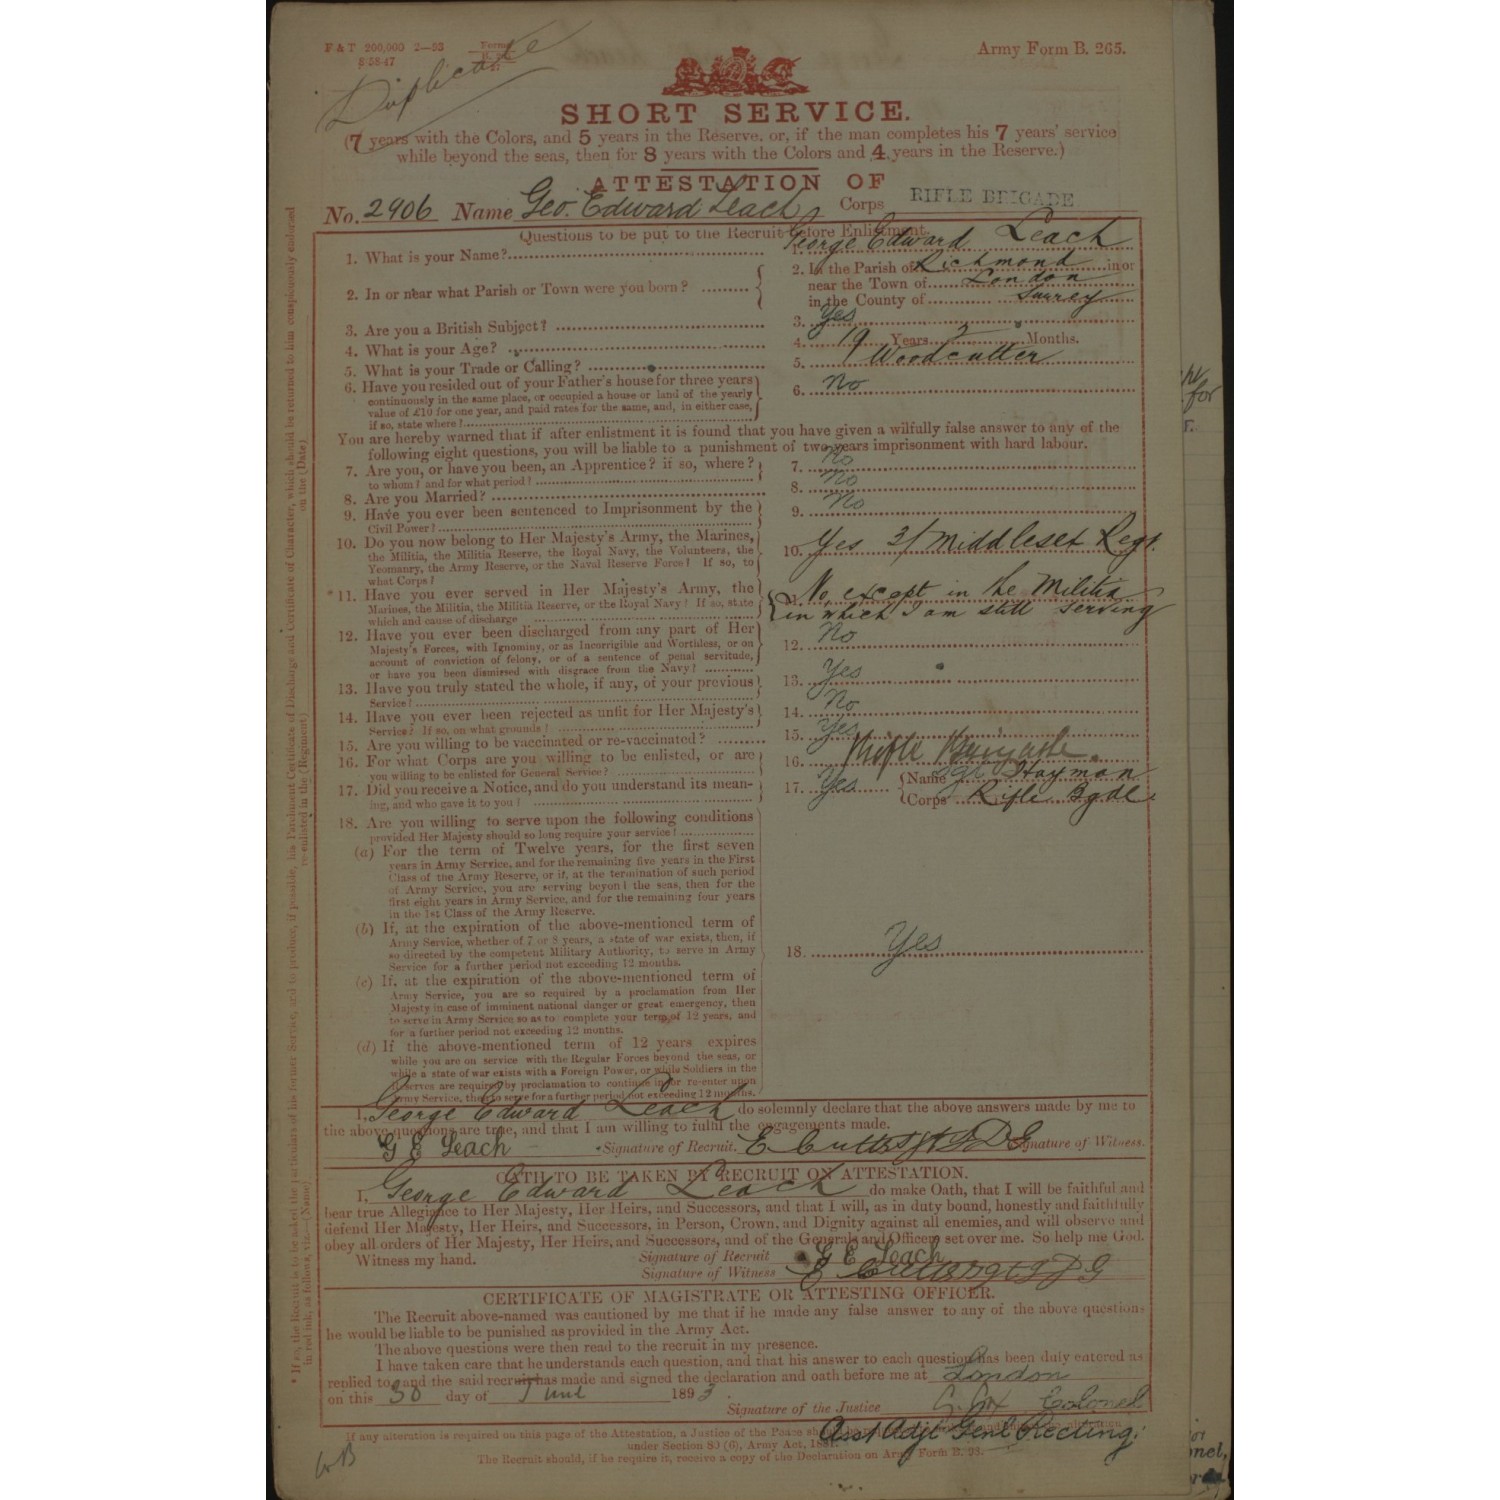 F & T 200,000 2—93
8·58·47
Forms
B. 265
Army Form B. 265.
Duplicate
SHORT SERVICE.
(7 years with the Colors, and 5 years in the Reserve, or, if the man completes his 7 years' service
while beyond the seas, then for 8 years with the Colors and 4 years in the Reserve.)
ATTESTATION OF
No. 2906 Name Geo. Edward Leach Corps RIFLE BRIGADE
Questions to be put to the Recruit before Enlistment.
1. What is your Name? 1. George Edward Leach
2. In or near what Parish or Town were you born? 2. In the Parish of Richmond in or
near the Town of London
in the County of Surrey
3. Are you a British Subject? 3. Yes
4. What is your Age? 4. 19 Years 2 Months.
5. What is your Trade or Calling? 5. Woodcutter
6. Have you resided out of your Father's house for three years 6. No
continuously in the same place, or occupied a house or land of the yearly
value of £10 for one year, and paid rates for the same, and, in either case,
if so, state where?
You are hereby warned that if after enlistment it is found that you have given a wilfully false answer to any of the
following eight questions, you will be liable to a punishment of two years imprisonment with hard labour.
7. Are you, or have you been, an Apprentice? if so, where? 7. No
to whom? and for what period?
8. Are you Married? 8. No
9. Have you ever been sentenced to Imprisonment by the 9. No
Civil Power?
10. Do you now belong to Her Majesty's Army, the Marines, 10. Yes 3/ Middlesex Regt.
the Militia, the Militia Reserve, the Royal Navy, the Volunteers, the
Yeomanry, the Army Reserve, or the Naval Reserve Force? If so, to
what Corps?
*11. Have you ever served in Her Majesty's Army, the 11. No, except in the Militia
Marines, the Militia, the Militia Reserve, or the Royal Navy? If so, state in which I am still serving
which and cause of discharge
12. Have you ever been discharged from any part of Her 12. No
Majesty's Forces, with Ignominy, or as Incorrigible and Worthless, or on
account of conviction of felony, or of a sentence of penal servitude,
or have you been dismissed with disgrace from the Navy?
13. Have you truly stated the whole, if any, of your previous 13. Yes
Service?
14. Have you ever been rejected as unfit for Her Majesty's 14. No
Service? If so, on what grounds?
15. Are you willing to be vaccinated or re-vaccinated? 15. Yes
16. For what Corps are you willing to be enlisted, or are 16. Rifle Brigade
you willing to be enlisted for General Service?
17. Did you receive a Notice, and do you understand its mean- 17. Yes Name Sgt Hayman
ing, and who gave it to you? Corps Rifle Bgde
18. Are you willing to serve upon the following conditions
provided Her Majesty should so long require your service?
(a) For the term of Twelve years, for the first seven
years in Army Service, and for the remaining five years in the First
Class of the Army Reserve, or if, at the termination of such period
of Army Service, you are serving beyond the seas, then for the
first eight years in Army Service, and for the remaining four years
in the 1st Class of the Army Reserve.
(b) If, at the expiration of the above-mentioned term of
Army Service, whether of 7 or 8 years, a state of war exists, then, if 18. Yes
so directed by the competent Military Authority, to serve in Army
Service for a further period not exceeding 12 months.
(c) If, at the expiration of the above-mentioned term of
Army Service, you are so required by a proclamation from Her
Majesty in case of imminent national danger or great emergency, then
to serve in Army Service so as to complete your term of 12 years, and
for a further period not exceeding 12 months.
(d) If the above-mentioned term of 12 years expires
while you are on service with the Regular Forces beyond the seas, or
while a state of war exists with a Foreign Power, or while Soldiers in the
Reserves are required by proclamation to continue in or re-enter upon
Army Service, then to serve for a further period not exceeding 12 months.
I, George Edward Leach do solemnly declare that the above answers made by me to
the above questions are true, and that I am willing to fulfil the engagements made.
G E Leach Signature of Recruit. E Cutts Sgt 5 D G Signature of Witness.
OATH TO BE TAKEN BY RECRUIT ON ATTESTATION.
I, George Edward Leach do make Oath, that I will be faithful and
bear true Allegiance to Her Majesty, Her Heirs, and Successors, and that I will, as in duty bound, honestly and faithfully
defend Her Majesty, Her Heirs, and Successors, in Person, Crown, and Dignity against all enemies, and will observe and
obey all orders of Her Majesty, Her Heirs, and Successors, and of the Generals and Officers set over me. So help me God.
Witness my hand. Signature of Recruit G E Leach
Signature of Witness E Cutts Sgt 5 D G
CERTIFICATE OF MAGISTRATE OR ATTESTING OFFICER.
The Recruit above-named was cautioned by me that if he made any false answer to any of the above questions
he would be liable to be punished as provided in the Army Act.
The above questions were then read to the recruit in my presence.
I have taken care that he understands each question, and that his answer to each question has been duly entered as
replied to, and the said recruit has made and signed the declaration and oath before me at London
on this 30 day of June 1893.
Signature of the Justice G. Cox Colonel
Asst Adjt Genl Recting.
If any alteration is required on this page of the Attestation, a Justice of the Peace
under Section 80 (6), Army Act, 1881.
The Recruit should, if he require it, receive a copy of the Declaration on Army Form B. 93.
* If so, the Recruit is to be asked the particulars of his former Service, and to produce, if possible, his Parchment Certificate of Discharge and Certificate of Character, which should be returned to him conspicuously endorsed
in red ink, as follows, viz.—(Name) re-enlisted in the (Regiment) on the (Date)